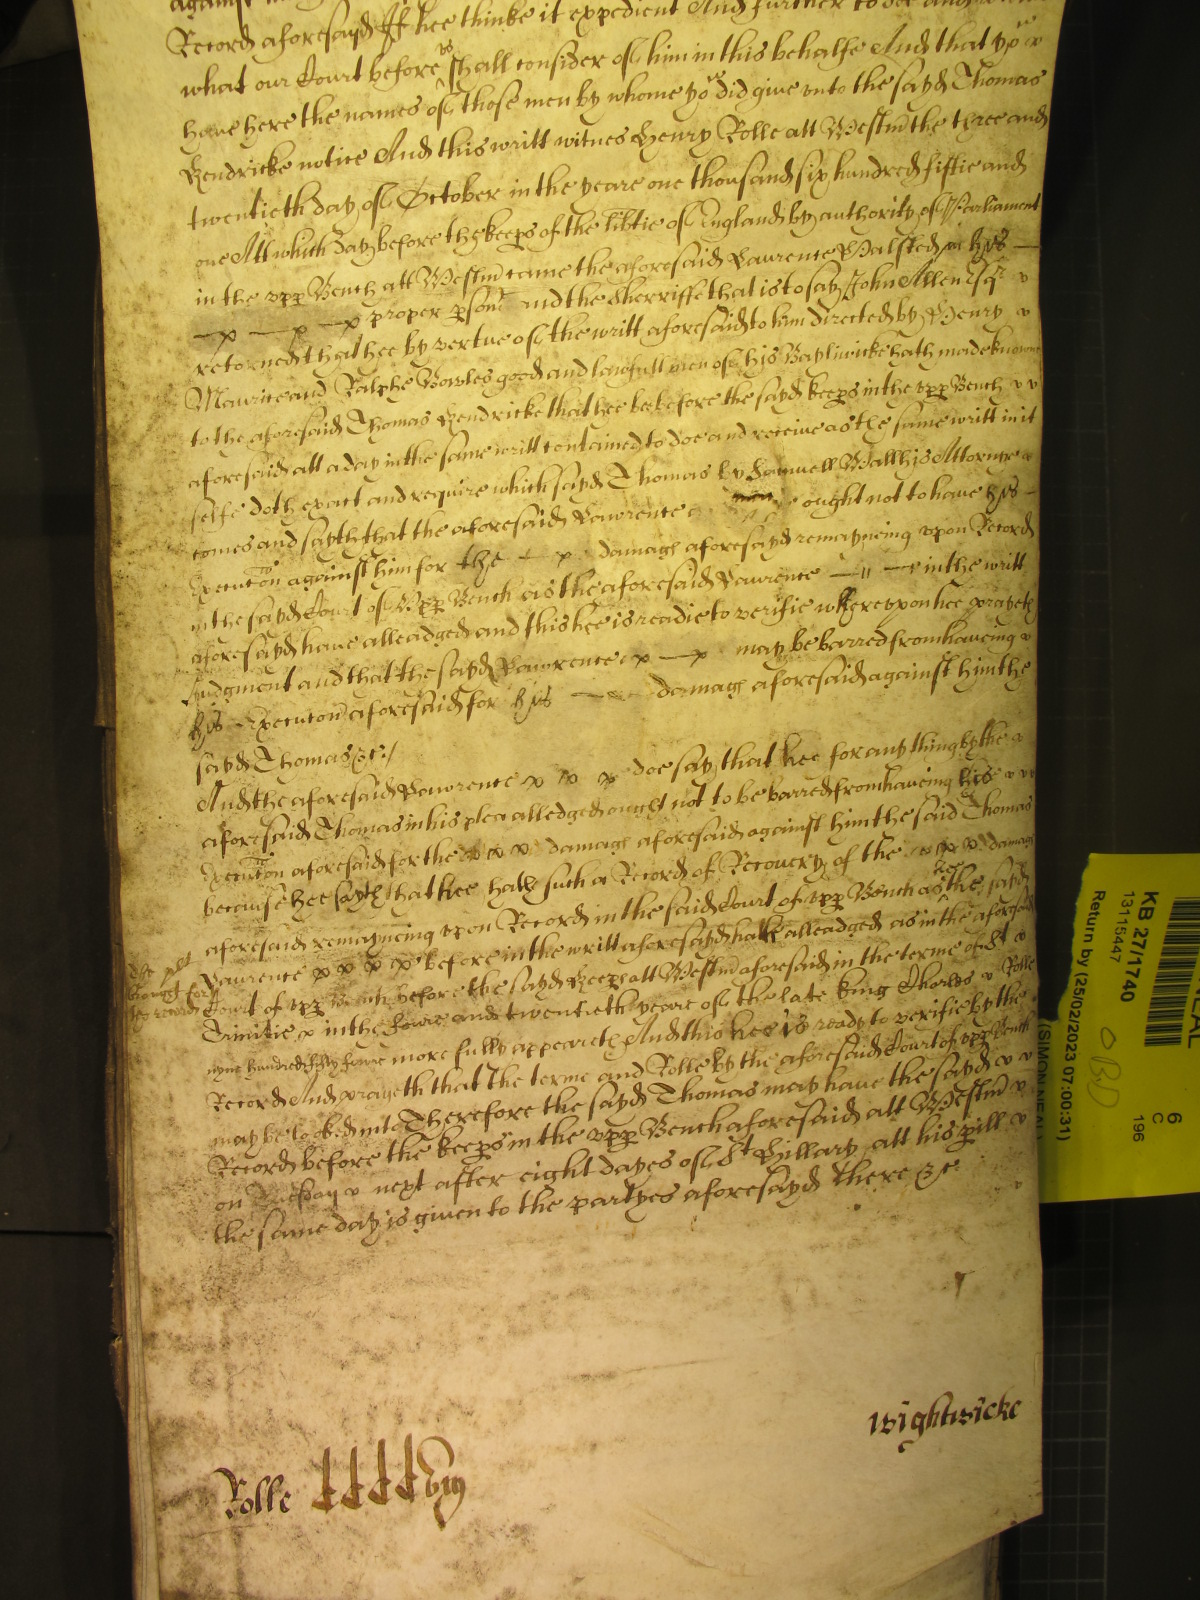 Record aforesayd If hee thinke it expedient And further to doe and
what our Court before us shall consider of him in this behalfe And that yow
have here the names of those men by whome yow did give unto the sayd Thomas
Kendricke notice And this writt witnes Henry Rolle att Westm the three and
twentieth day of October in the yeare one thousand six hundred fiftie and
one Att which day before the keeps of the libtie of England by authority of Parliament
in the upp Bench att Westm came the aforesaid Laurence Halsted in his
proper pson and the Sherriffe that is to say John Allen Esq
retorned that hee by vertue of the writt aforesaid to him directed by Henry
Maurice and Ralphe Bowles good and lawfull men of his Bayliwicke hath made knowne
to the aforesaid Thomas Kendricke that hee bee before the sayd keeps in the upp Bench
aforesaid att a day in the same writt contained to doe and receive as the same writt in it
selfe doth exact and require which sayd Thomas by Samuell Wall his Attorney
comes and sayth that the aforesaid Lawrence ought not to have his
Execution against him for the damage aforesayd remayneing upon Record
in the sayd Court of Upp Bench as the aforesaid Lawrence in the writt
aforesayd have alleadged and this hee is readie to verifie whereupon hee prayeth
Judgment and that the sayd Lawrence may be barred from haveing
his Execution aforesaid for his damage aforesaid against him the
sayd Thomas &c/
And the aforesaid Lawrence doe say that hee for any thing by the
aforesaid Thomas in his plea alledged ought not to be barred from haveing his
Execution aforesaid for the damage aforesaid against him the said Thomas
because hee sayth that hee hath such a Record of Recovery of the damage
aforesaid remayneing upon Record in the said Court of upp Bench as hee the sayd
Lawrence before in the writt aforesayd hath alleadged as in the aforesaid
Court of upp Bench before the sayd Keeps att Westm aforesaid in the terme of
Trinitie in the foure and twentieth yeare of the late King Charles Rolle
nyne hundred fifty foure more fully appeareth And this hee is ready to verifie by the
Record And prayeth that the terme and Rolle by the aforesaid Court of upp Bench
may be looked into Therefore the sayd Thomas may have the sayd
Record before the keeps in the upp Bench aforesaid att Westm
on next after eight dayes of St Hillary att his pill
the same day is given to the partyes aforesayd there &c
Wightwicke
Rolle
KB 27/1740
13115447
Return by (25/02/2023 07:00:31)
6
C
196
(SIMON NEAL)